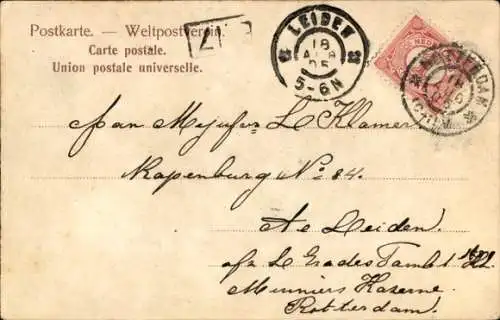 Postkarte. — Weltpostverein.
Carte postale.
Union postale universelle.
7
LEIDEN
18
05
5-6N
NED
Aan Mejufr L Klamer
Kapenburg No 84.
te Leiden.
afz L Erades Tamb
Menniers Kazerne.
Rotterdam.